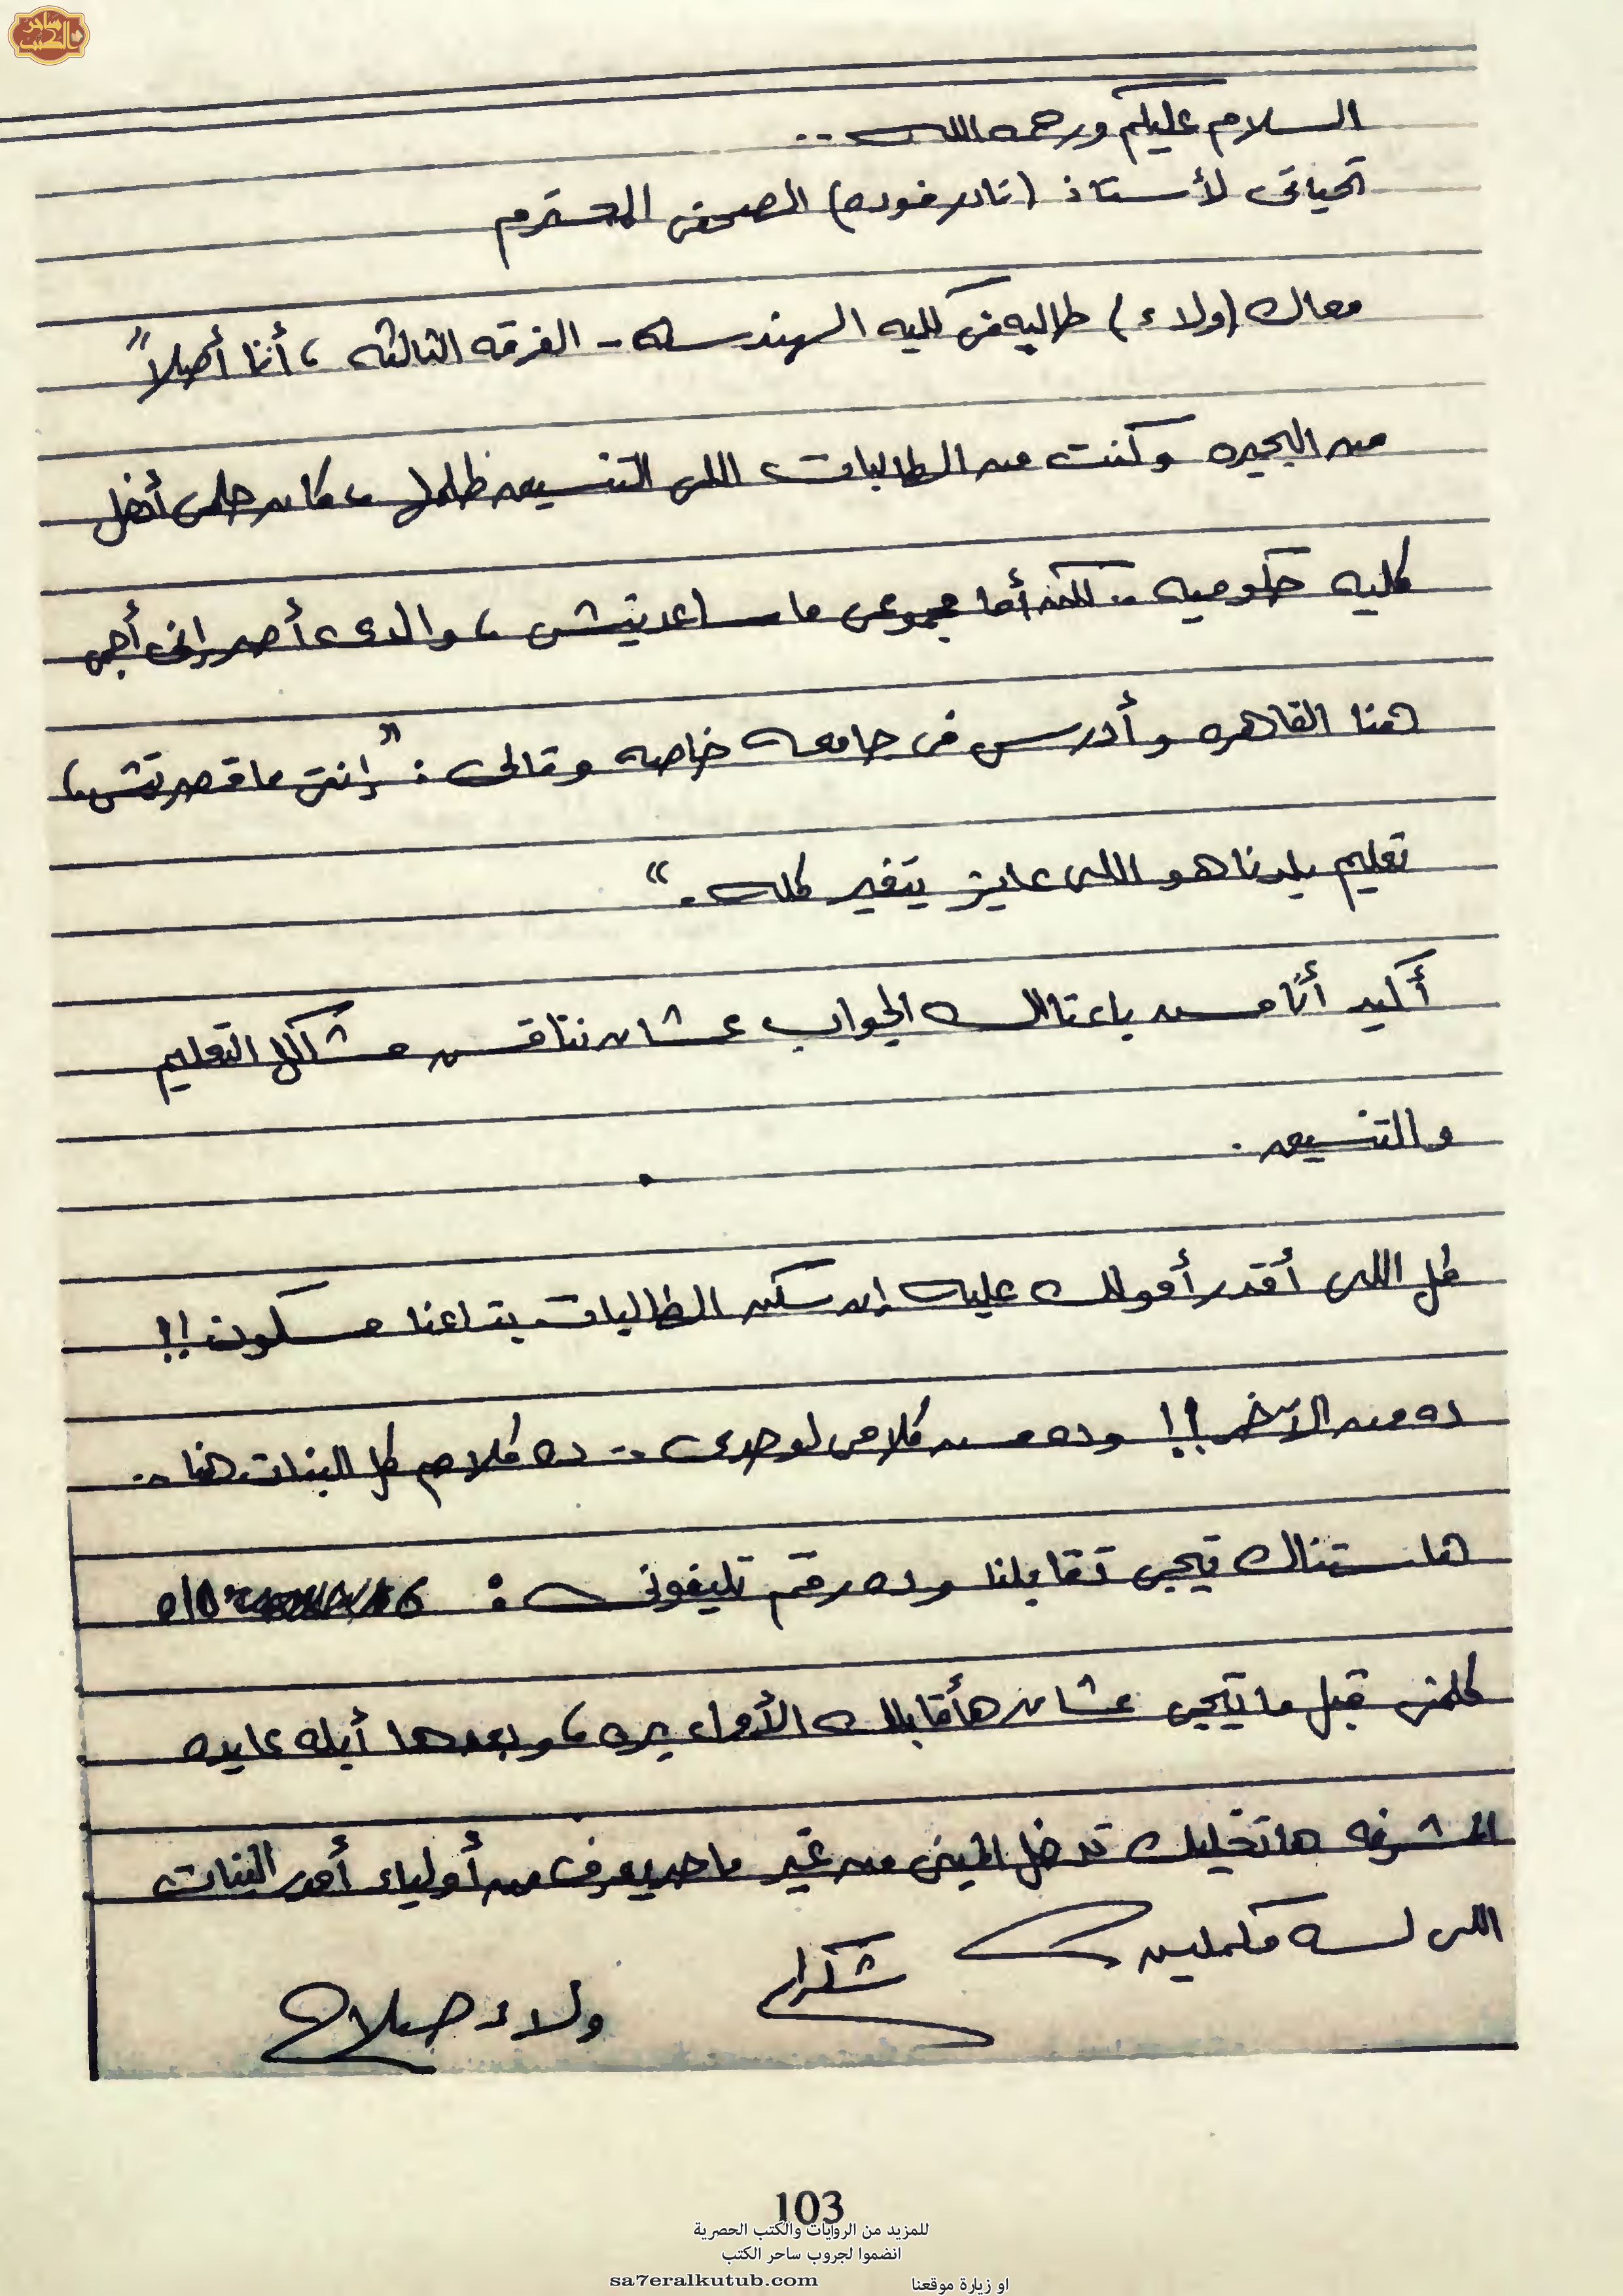 ساحر الكتب
السلام عليكم ورحمه الله ..
تحياتى لأستاذ (نادر فوده) الصحفى المحترم
معاك (ولاء) طالبه فى كليه الهندسه - الفرقه الثالثه ، أنا أصلاً
من البحيره وكنت من الطالبات اللى التنسيق ظلمها ، كان حلمى أدخل
كليه حكوميه .. لكن أما مجموعى ماساعدنيش ، والدى أصر إنى أجى
هنا القاهره وأدرس فى جامعه خاصه وقالى : " إنتى ماقصرتيش ،
تعليم بلدنا هو اللى عايز يتغير كله . "
أكيد أنا مش باعتالك الجواب عشان نناقش مشاكل التعليم
والتنسيق .
كل اللى أقدر أقولك عليه إن سكن الطالبات بتاعنا مسكون !!
ده من الآخر !! وده مش كلامى لوحدى .. ده كلام كل البنات هنا ..
هاستناك تيجى تقابلنا وده رقم تليفونى :
كلمنى قبل ما تيجى عشان هأقابلك الأول بره ، وبعدها أبله عايده
المشرفه هاتخليك تدخل المبنى من غير ماحد يعرف من أولياء أمور البنات
اللى لسه مكملين
شكراً
ولاء صلاح
103
للمزيد من الروايات والكتب الحصرية
انضموا لجروب ساحر الكتب
او زيارة موقعنا sa7eralkutub.com